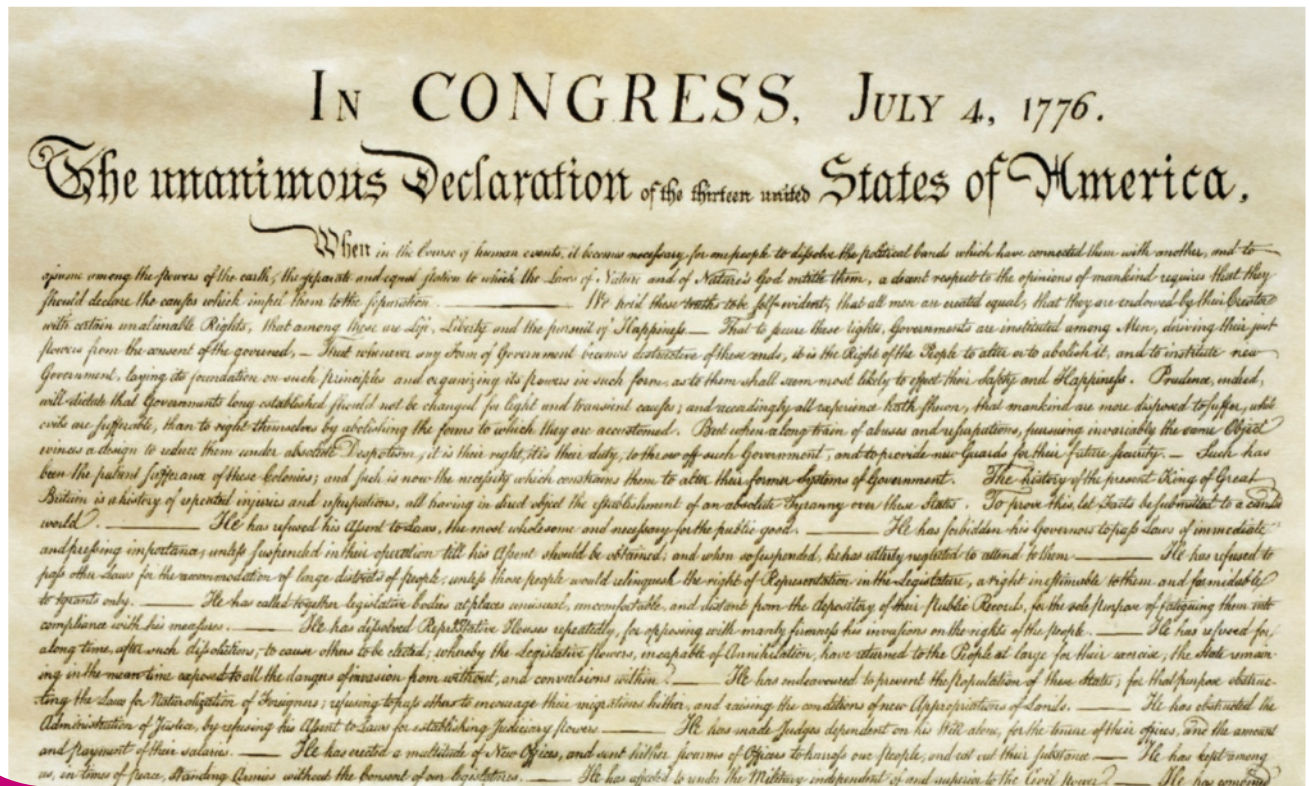 IN CONGRESS, JULY 4, 1776.
The unanimous Declaration of the thirteen united States of America,
When in the Course of human events, it becomes necessary for one people to dissolve the political bands which have connected them with another, and to
assume among the powers of the earth, the separate and equal station to which the Laws of Nature and of Nature's God entitle them, a decent respect to the opinions of mankind requires that they
should declare the causes which impel them to the separation. ——— We hold these truths to be self-evident, that all men are created equal, that they are endowed by their Creator
with certain unalienable Rights, that among these are Life, Liberty and the pursuit of Happiness — That to secure these rights, Governments are instituted among Men, deriving their just
powers from the consent of the governed, — That whenever any Form of Government becomes destructive of these ends, it is the Right of the People to alter or to abolish it, and to institute new
Government, laying its foundation on such principles and organizing its powers in such form, as to them shall seem most likely to effect their Safety and Happiness. Prudence, indeed,
will dictate that Governments long established should not be changed for light and transient causes; and accordingly all experience hath shewn, that mankind are more disposed to suffer, while
evils are sufferable, than to right themselves by abolishing the forms to which they are accustomed. But when a long train of abuses and usurpations, pursuing invariably the same Object
evinces a design to reduce them under absolute Despotism, it is their right, it is their duty, to throw off such Government, and to provide new Guards for their future security. — Such has
been the patient sufferance of these Colonies; and such is now the necessity which constrains them to alter their former Systems of Government. The history of the present King of Great
Britain is a history of repeated injuries and usurpations, all having in direct object the establishment of an absolute Tyranny over these States. To prove this, let Facts be submitted to a candid
world. ——— He has refused his Assent to Laws, the most wholesome and necessary for the public good. ——— He has forbidden his Governors to pass Laws of immediate
and pressing importance, unless suspended in their operation till his Assent should be obtained; and when so suspended, he has utterly neglected to attend to them ——— He has refused to
pass other Laws for the accommodation of large districts of people, unless those people would relinquish the right of Representation in the Legislature, a right inestimable to them and formidable
to tyrants only. ——— He has called together legislative bodies at places unusual, uncomfortable, and distant from the depository of their Public Records, for the sole purpose of fatiguing them into
compliance with his measures. ——— He has dissolved Representative Houses repeatedly, for opposing with manly firmness his invasions on the rights of the people. ——— He has refused for
a long time, after such dissolutions, to cause others to be elected; whereby the Legislative powers, incapable of Annihilation, have returned to the People at large for their exercise; the State remain-
ing in the mean time exposed to all the dangers of invasion from without, and convulsions within. ——— He has endeavoured to prevent the Population of these States; for that purpose obstruc-
ting the Laws for Naturalization of Foreigners; refusing to pass others to encourage their migrations hither, and raising the conditions of new Appropriations of Lands. ——— He has obstructed the
Administration of Justice, by refusing his Assent to Laws for establishing Judiciary powers. ——— He has made Judges dependent on his Will alone, for the tenure of their offices, and the amount
and payment of their salaries. ——— He has erected a multitude of New Offices, and sent hither swarms of Officers to harrass our people, and eat out their substance. ——— He has kept among
us, in times of peace, Standing Armies without the Consent of our legislatures. ——— He has affected to render the Military independent of and superior to the Civil power. ——— He has combined